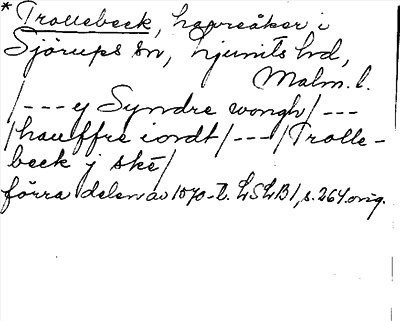 * Trollebeck, havreåker i
Sjörups sn, Ljunits hd,
Malm. l.
/--- y Syndre wongh/---
/hauffre iordt/---/Trolle-
beck j ske/
förra delen av 1570-t. LSLB1, s. 264 orig.